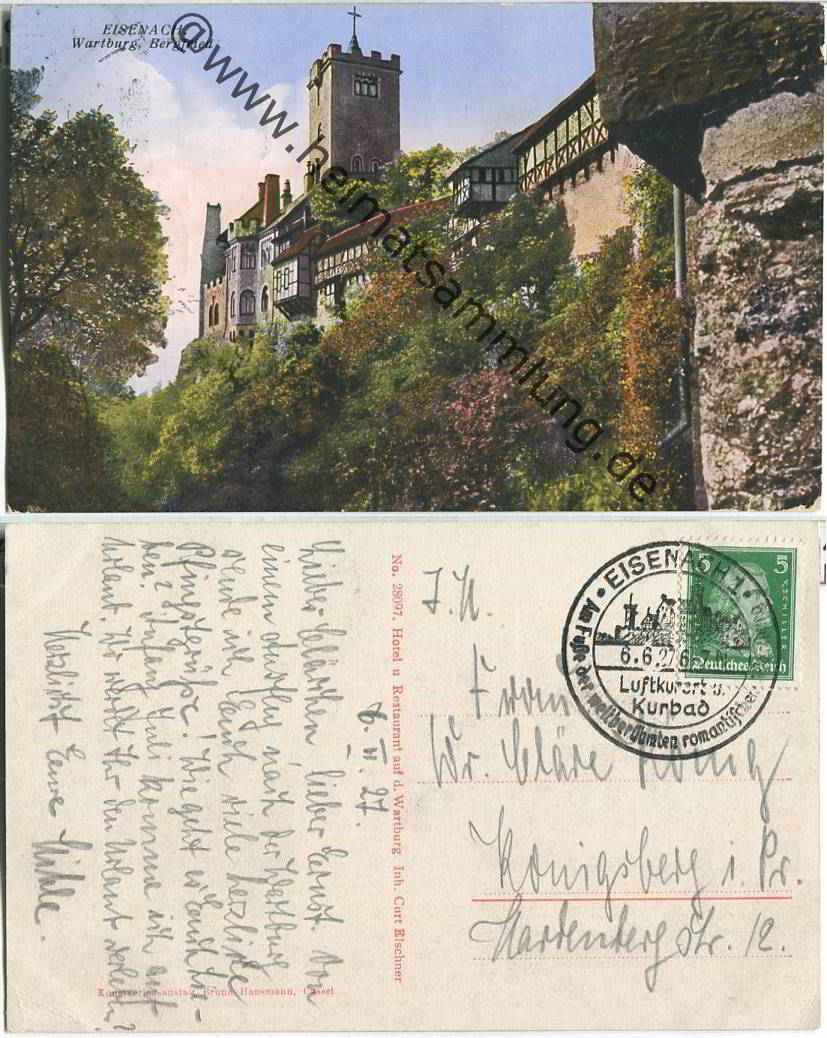 EISENACH
Wartburg, Bergfried
@www.heimatsammlung.de
6. VI. 27.
Liebes Clärchen, lieber Ernst. Von
einem Ausflug nach der Wartburg
sende ich Euch viele herzliche
Pfingstgrüße! Wie geht es Euch bei-
den? Anfang Juli komme ich auf
Urlaub. Wo werdet Ihr den Urlaub verleben?
Herzlichst Eure
No. 28097. Hotel u Restaurant auf d. Wartburg Inh. Curt Elschner
Kunstverlagsanstalt Bruno Hansmann, Cassel
EISENACH 1
6.6.27.6
Luftkurort u.
Kurbad
Am Fuße der weltberühmten romantischen
5 5
V. SCHILLER
Deutsches Reich
Frau
Dr. Cläre König
Königsberg i. Pr.
Hardenbergstr. 12.